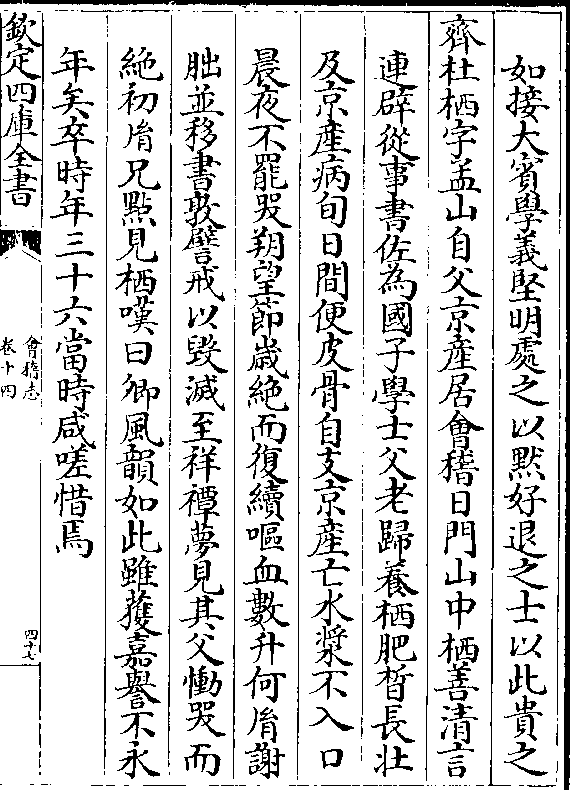 如接大賓學義堅明處之以黙好退之士以此貴之
齊杜栖字孟山自父京産居會稽日門山中栖善清言
連辟從事書佐為國子學士父老歸養栖肥晳長壯
及京産病旬日間便皮骨自支京産亡水漿不入口
晨夜不罷哭朔望節歲絶而復續嘔血數升何𦙍謝
朏並移書敦譬戒以毀滅至祥禫夢見其父慟哭而
絶初𦙍兄點見栖嘆曰卿風韻如此雖獲嘉譽不永
年矣卒時年三十六當時咸嗟惜焉
欽定四庫全書
會稽志
卷十四
四十七